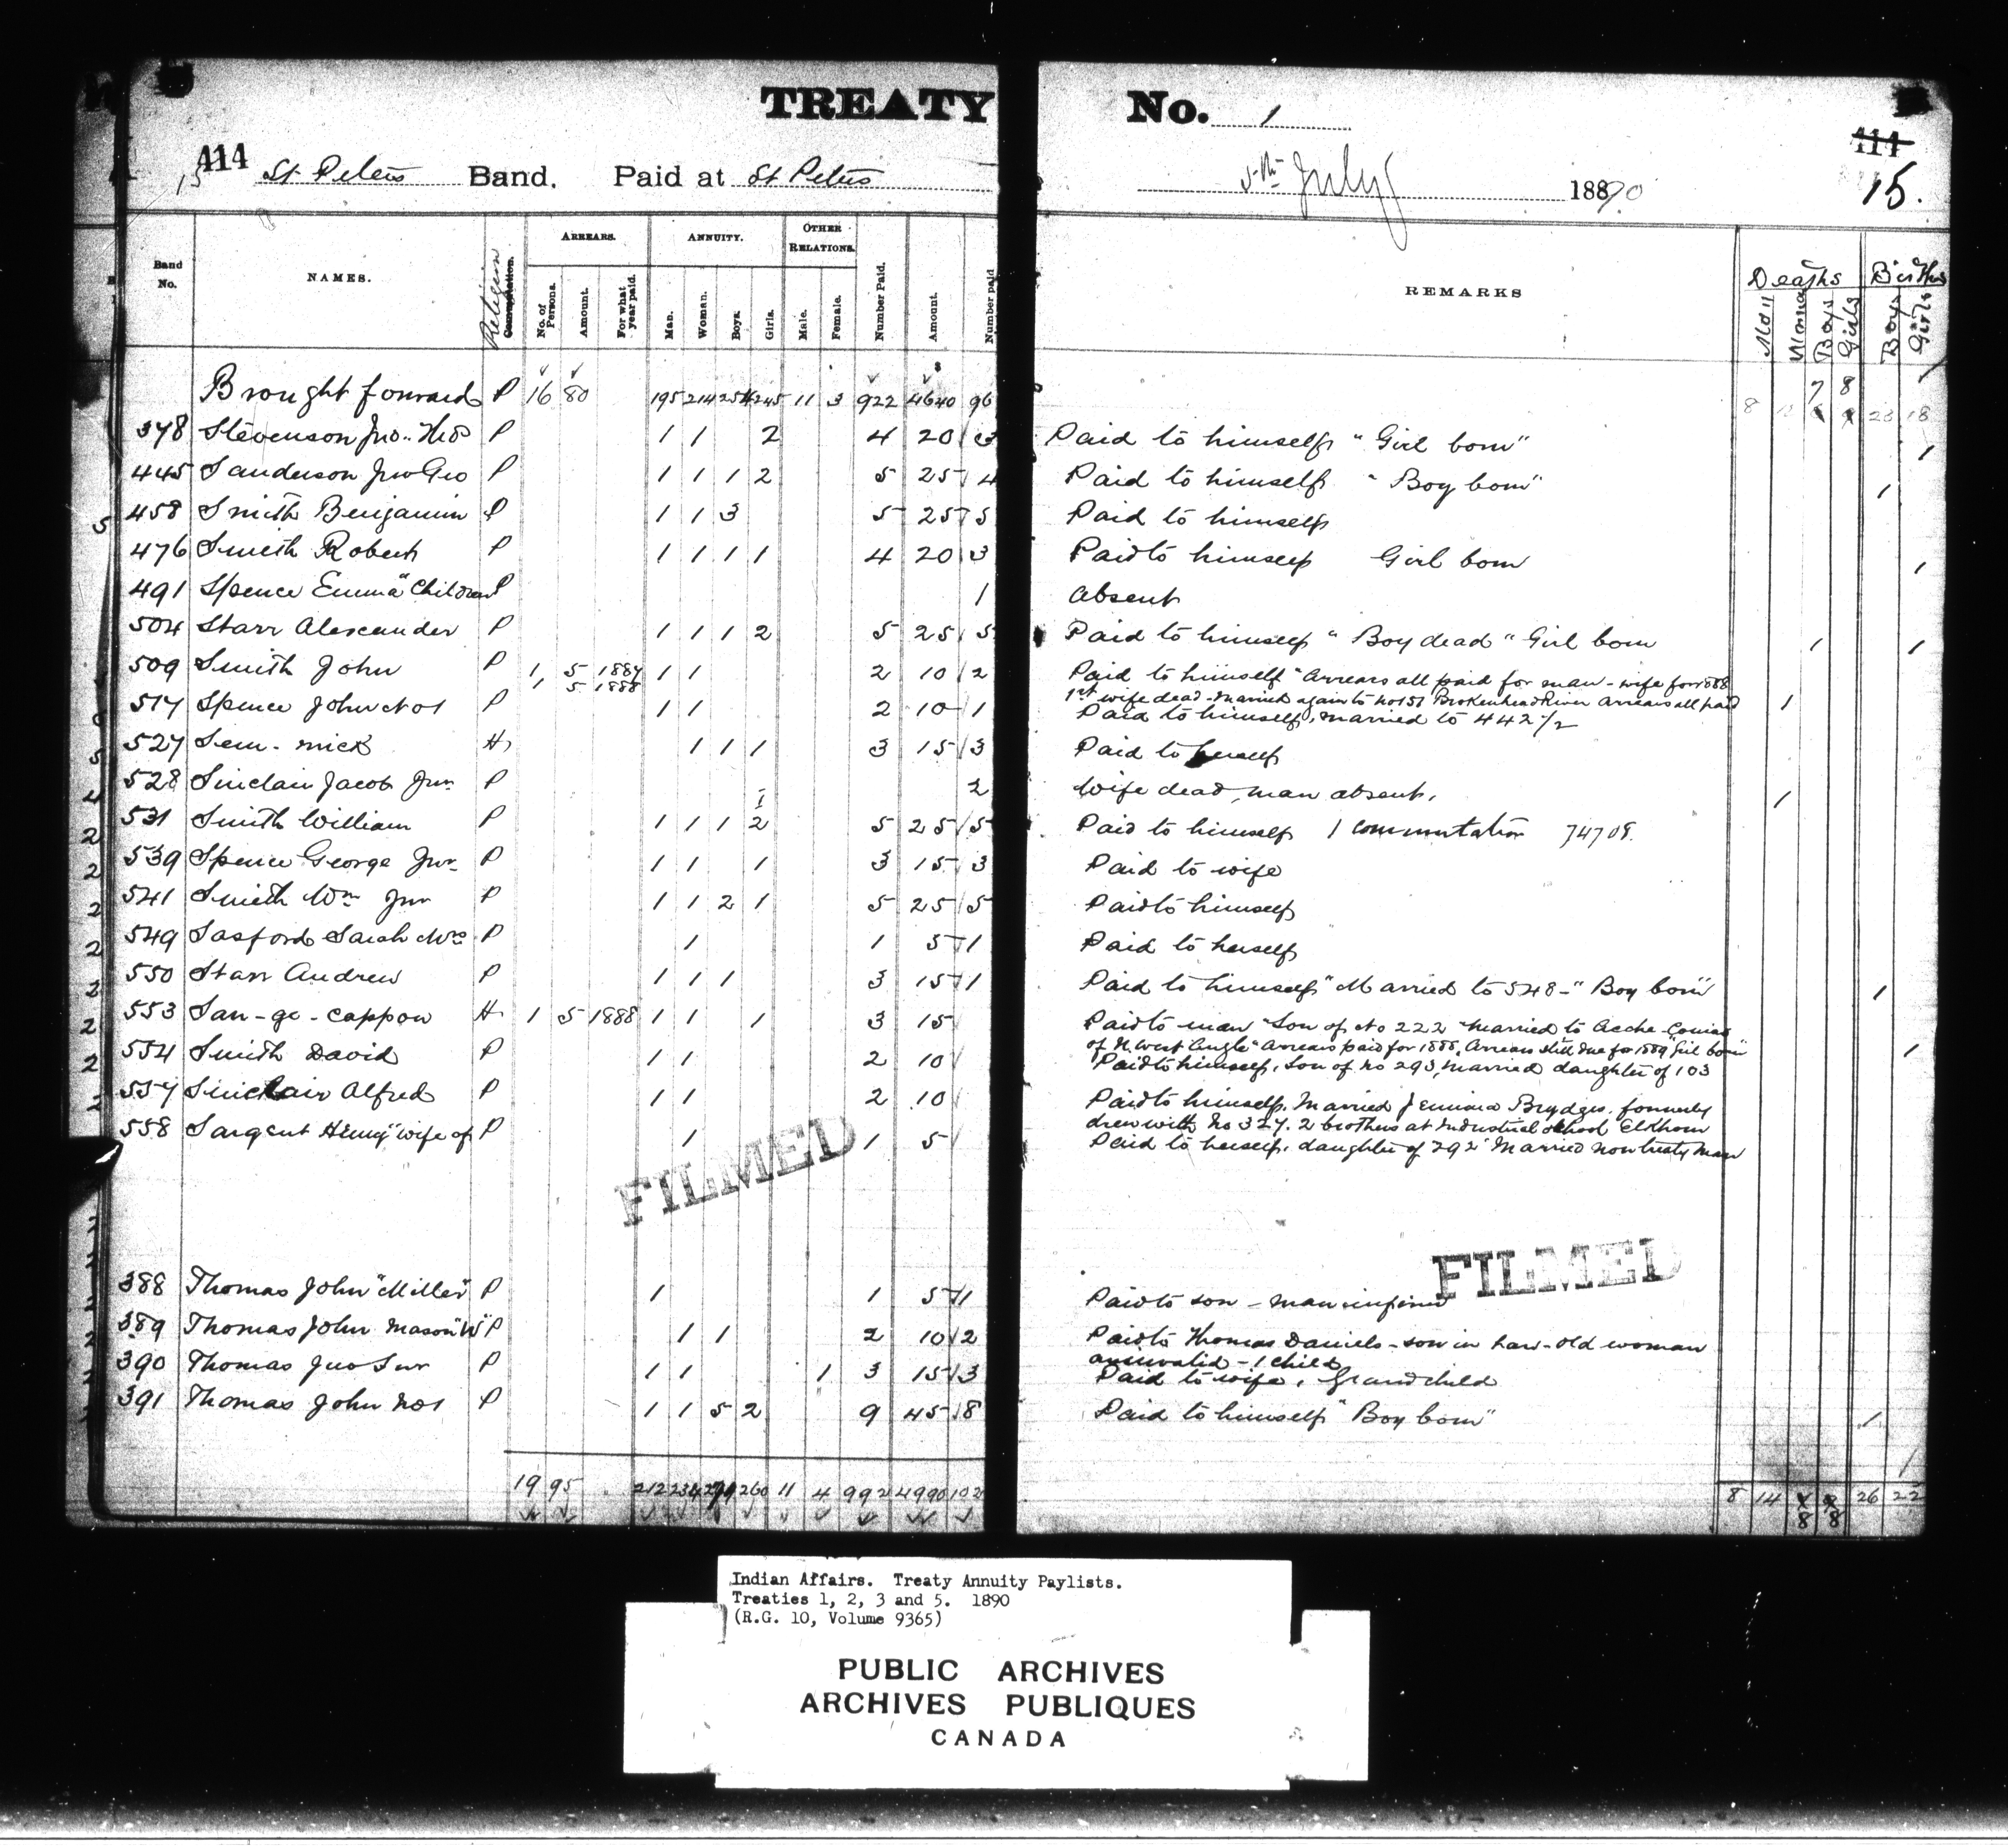 TREATY No. 1
414 St Peters Band. Paid at St Peters 5th July 1890 414
15 15.
Band No. NAMES. Religion ARREARS. No. of Persons. Amount. For what year paid. ANNUITY. Man. Woman. Boys. Girls. OTHER RELATIONS. Male. Female. Number Paid. Amount. Number paid REMARKS Deaths Men Women Boys Girls Births Boys Girls
Brought forward P 16 80 195 214 254 245 11 3 922 4640 96 8 7 8 23 18
378 Stevenson Jno. P 1 1 2 4 20 3 Paid to himself "Girl born" 1
445 Sanderson Jno Geo P 1 1 1 2 5 25 4 Paid to himself "Boy born" 1
458 Smith Benjamin P 1 1 3 5 25 5 Paid to himself
476 Smith Robert P 1 1 1 1 4 20 3 Paid to himself Girl born 1
491 Spence Emma "Children P 1 Absent
504 Starr Alexander P 1 1 1 2 5 25 5 Paid to himself "Boy dead" Girl born 1 1
509 Smith John P 1 5 1887 1 1 2 10 2 Paid to himself "Arrears all paid for man - wife for 1888
1 5 1888 1st wife dead - married again to No 151 Brokenhead River Arrears all paid 1
517 Spence John No 1 P 1 1 2 10 1 Paid to himself, married to 442 1/2
527 Sem-mick H 1 1 1 3 15 3 Paid to herself
528 Sinclair Jacob Jun. P 1 2 Wife dead, man absent. 1
531 Smith William P 1 1 1 2 5 25 5 Paid to himself 1 commutation 74709.
539 Spence George Jur. P 1 1 1 3 15 3 Paid to wife
541 Smith Wm Jur P 1 1 2 1 5 25 5 Paid to himself
549 Sasford Sarah Mrs P 1 1 5 1 Paid to herself
550 Starr Andrew P 1 1 1 3 15 1 Paid to himself "Married to 548 - "Boy born" 1
553 San-ge-cappow H 1 5 1888 1 1 1 3 15 Paid to man "Son of No 222 "Married to
of N. West Angle" Arrears paid for 1888. Arrears still due for 1889 "Girl born" 1
554 Smith David P 1 1 2 10 Paid to himself, Son of No 293, married daughter of 103
557 Sinclair Alfred P 1 1 2 10 Paid to himself. Married Jemima Brydges. formerly
drew with No 327. 2 brothers at Industrial School Elkhorn
558 Sargent Henry "wife of P 1 1 5 Paid to herself, daughter of 292 "Married non treaty man
FILMED
FILMED
388 Thomas John "Miller" P 1 1 5 1 Paid to son - man infirm
389 Thomas John Mason "W" P 1 1 2 10 2 Paid to Thomas Daniels - son in law - old woman
an invalid - 1 child
390 Thomas Jno Snr P 1 1 1 3 15 3 Paid to wife, Grandchild
391 Thomas John No 1 P 1 1 5 2 9 45 8 Paid to himself "Boy born" 1
19 95 212 234 260 11 4 992 4990 102 8 14 8 8 26 22
Indian Affairs. Treaty Annuity Paylists.
Treaties 1, 2, 3 and 5. 1890
(R.G. 10, Volume 9365)
PUBLIC ARCHIVES
ARCHIVES PUBLIQUES
CANADA